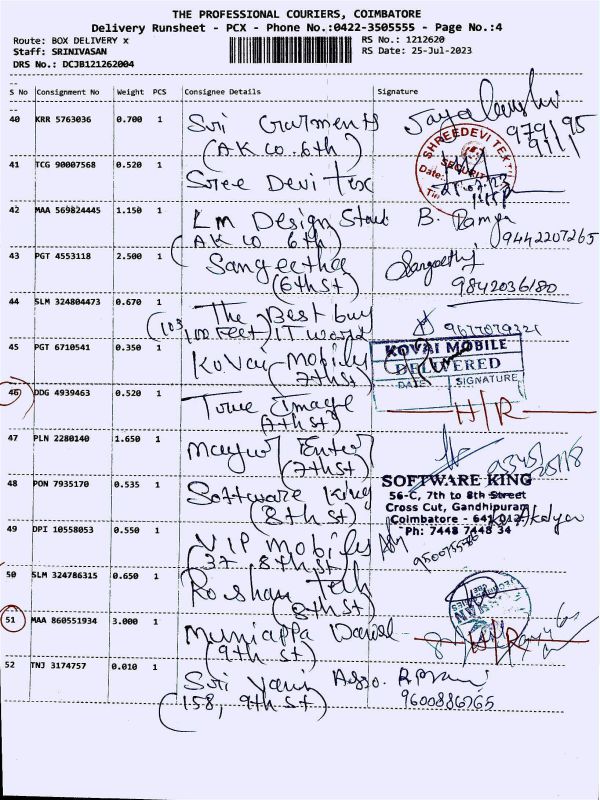 THE PROFESSIONAL COURIERS, COIMBATORE
Delivery Runsheet - PCX - Phone No.:0422-3505555 - Page No.:4
Route: BOX DELIVERY x RS No.: 1212620
Staff: SRINIVASAN RS Date: 25-Jul-2023
DRS No.: DCJB121262004
S No Consignment No Weight PCS Consignee Details Signature
40 KRR 5763036 0.700 1 Sri Garments
(AK co. 6th)
SHREEDEVI TEX
SECURITY
Date:
41 TCG 90007568 0.520 1 Sree Devi Tex
42 MAA 569824445 1.150 1 Lm Design B. Ramya
(AK co 6th) 9442207265
43 PGT 4553118 2.500 1 Sangeetha
(6th st) 9842036180
44 SLM 324804473 0.670 1 The Best buy
100 Feet) IT world
KOVAI MOBILE
DELIVERED
DATE SIGNATURE
45 PGT 6710541 0.350 1 Kovai Mobily
(7th st)
46 DDG 4939463 0.520 1 True Image H/R
(7th st)
47 PLN 2280140 1.650 1 Mayur Enter
(7th st)
48 PON 7935170 0.535 1 Software King
(8th st)
SOFTWARE KING
56-C, 7th to 8th Street
Cross Cut, Gandhipuram
Coimbatore - 641 012.
Ph: 7448 7448 34
49 DPI 10558053 0.550 1 VIP mobily
37, 8th st)
50 SLM 324786315 0.650 1 Roshan Tech
(8th st)
51 MAA 860551934 3.000 1 Muniappa H/R
(9th st)
52 TNJ 3174757 0.010 1 Sri Vani Asso.
(158, 9th st) 9600886765